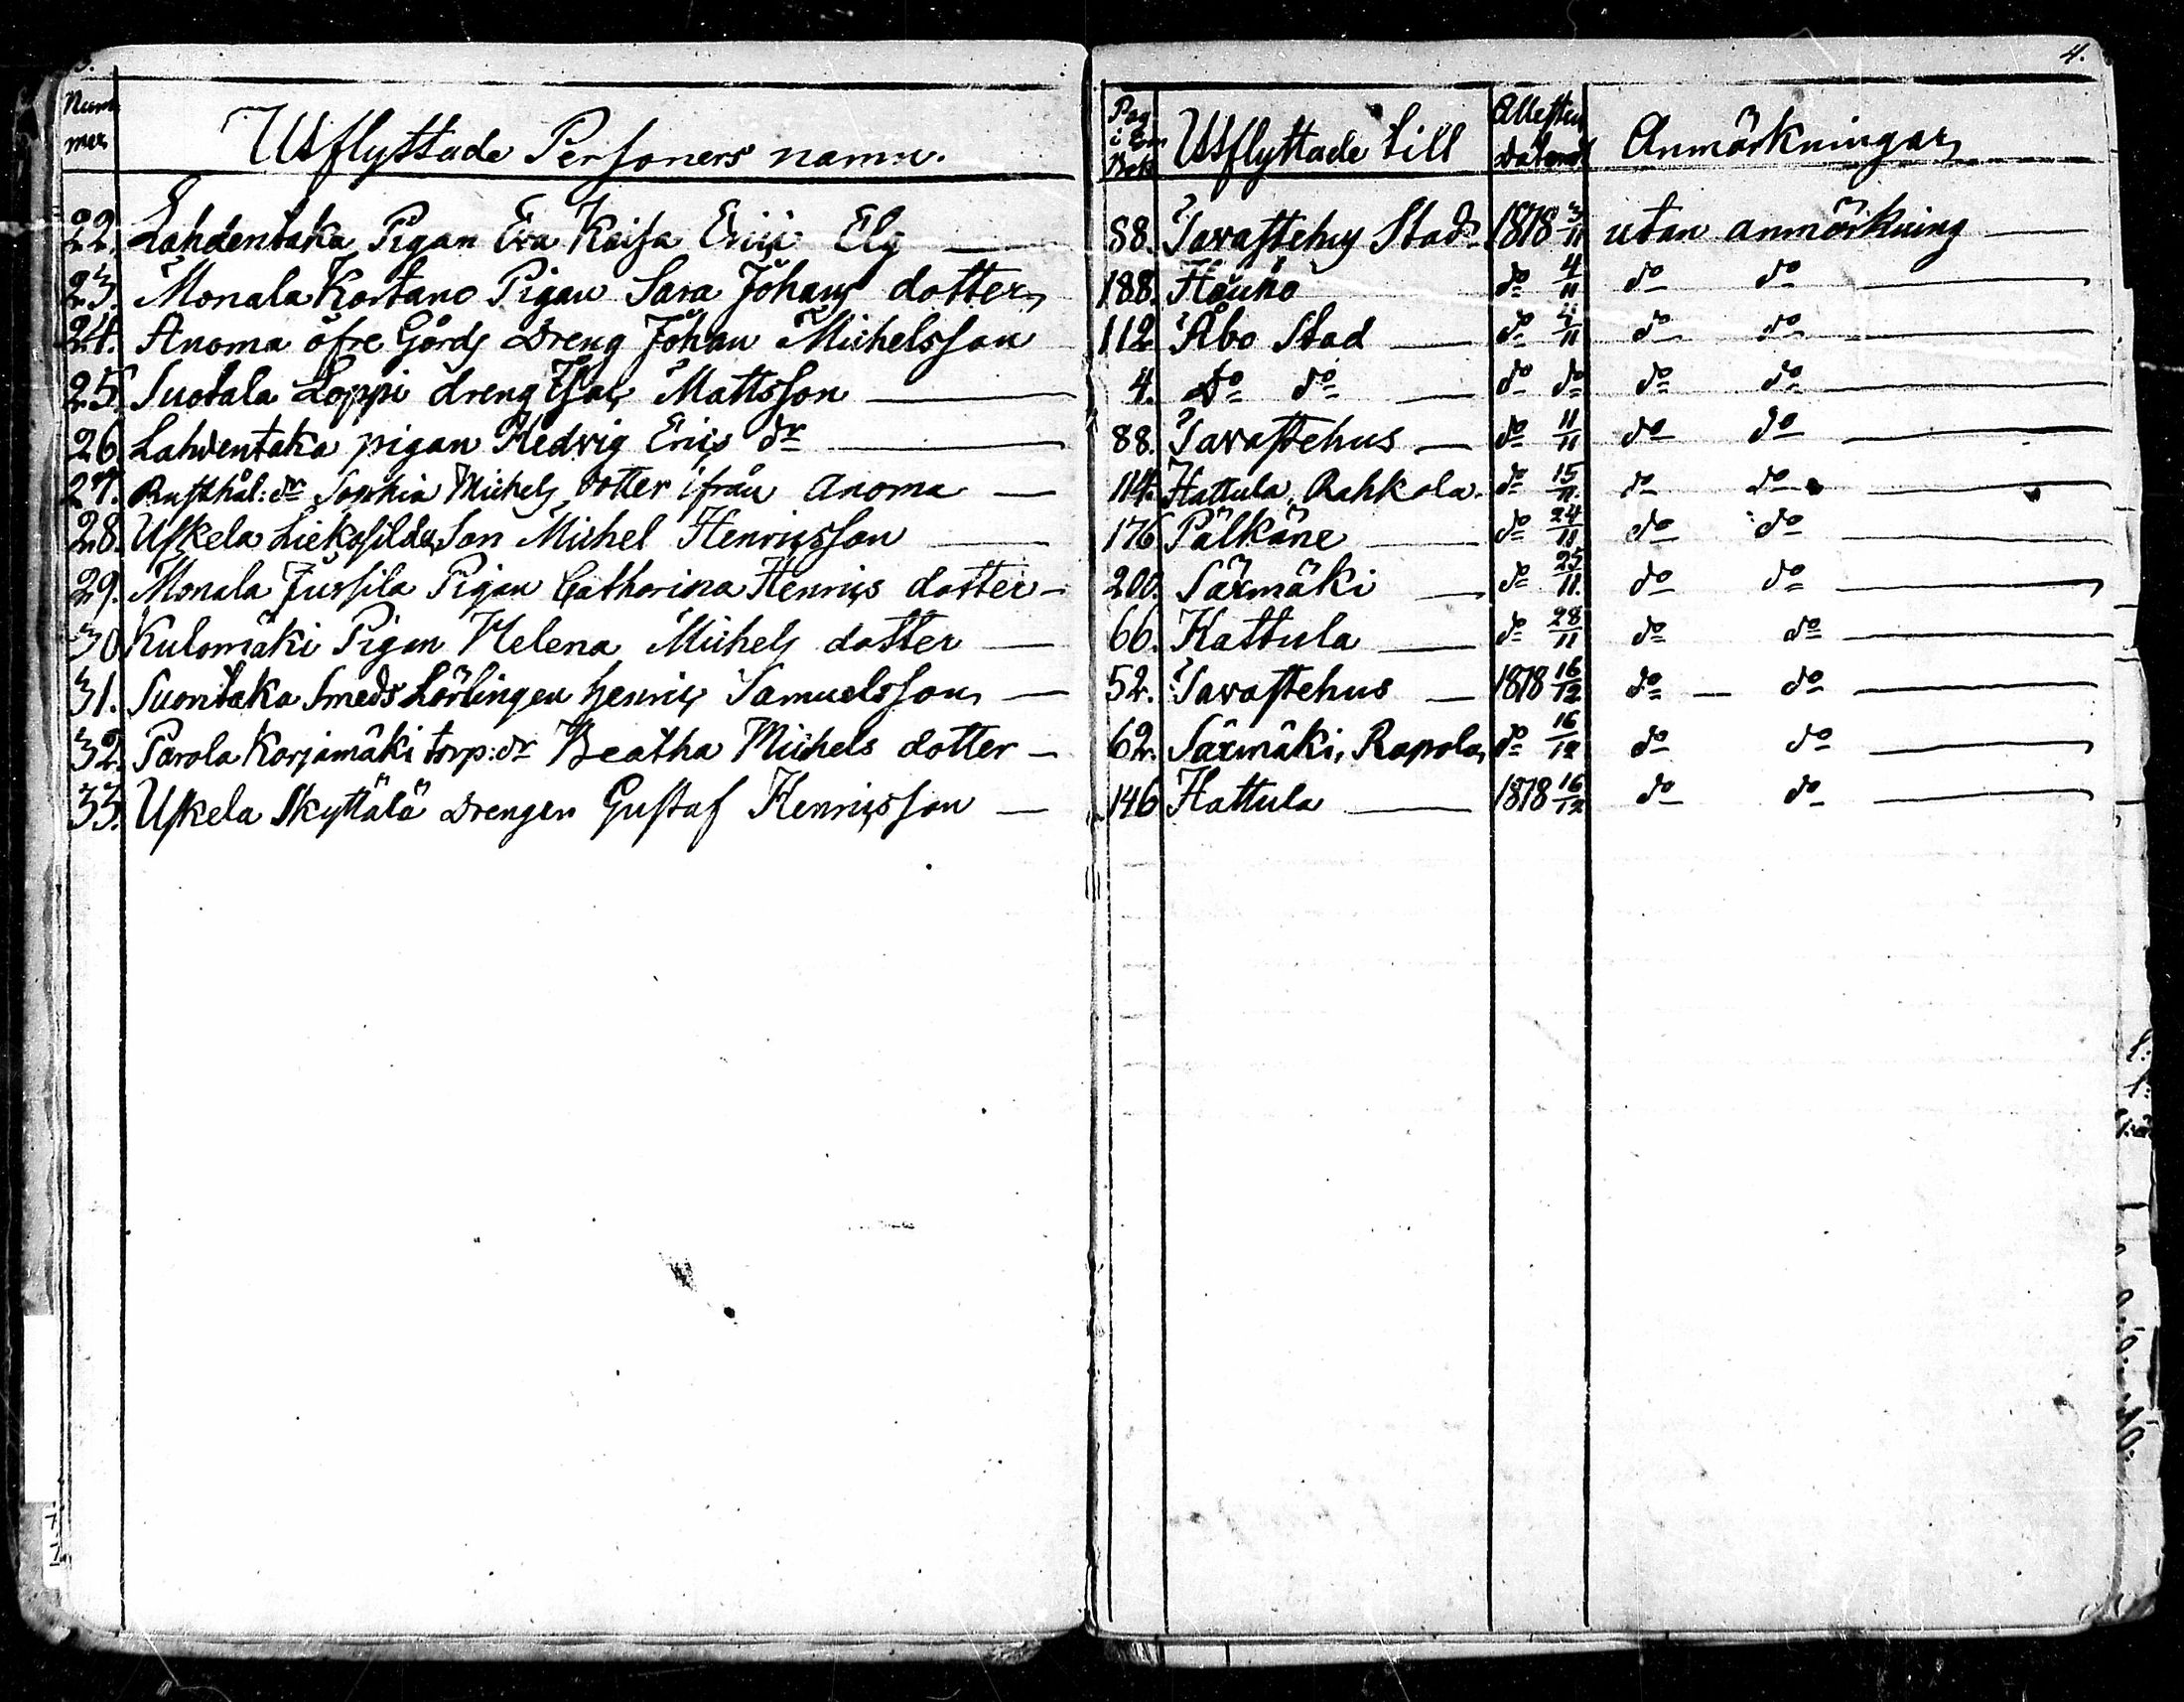 3.
4.
Num mer | Utflyttade Personers namn. | Pag i Com Bok | Utflyttade till | Attesten Daterad | Anmärkningar
22. Lahdentaka Pigan Eva Kaisa 88. Tavastehus Stad 1818 3/11 utan anmärkning
23. Monala Kortano Pigan Sara Johans dotter 188. Hauho do 4/11 do do
24. Anoma öfre Gårds Dreng Johan Michelsson 112 Åbo Stad do /11 do do
25. Suotala Loppi dreng Isac Mattsson 4. do do do do do do
26. Lahdentaka pigan Hedvig Erics dr 88. Tavastehus do 11/11 do do
27. Rusthål: dr Sophia Michels dotter ifrån Anoma 114. Hattula, Rahkola. do 15/11. do do
28. Uskela Son Michel Henricsson 176 Pälkäne do 24/11 do do
29. Monala Jussila Pigan Catharina Henrics dotter 200. Säxmäki do 25/11. do do
30 Kulomäki Pigan Helena Michels dotter 66. Hattula do 28/11 do do
31. Suontaka Smeds Lärlingen Henric Samuelsson 52. Tavastehus 1818 16/12 do do
32. Parola Korjamäki torp: dr Beatha Michels dotter 62. Säxmäki, Rapola do 16/12 do do
33. Uskela Skyttälä Drengen Gustaf Henricsson 146 Hattula 1818 16/12 do do